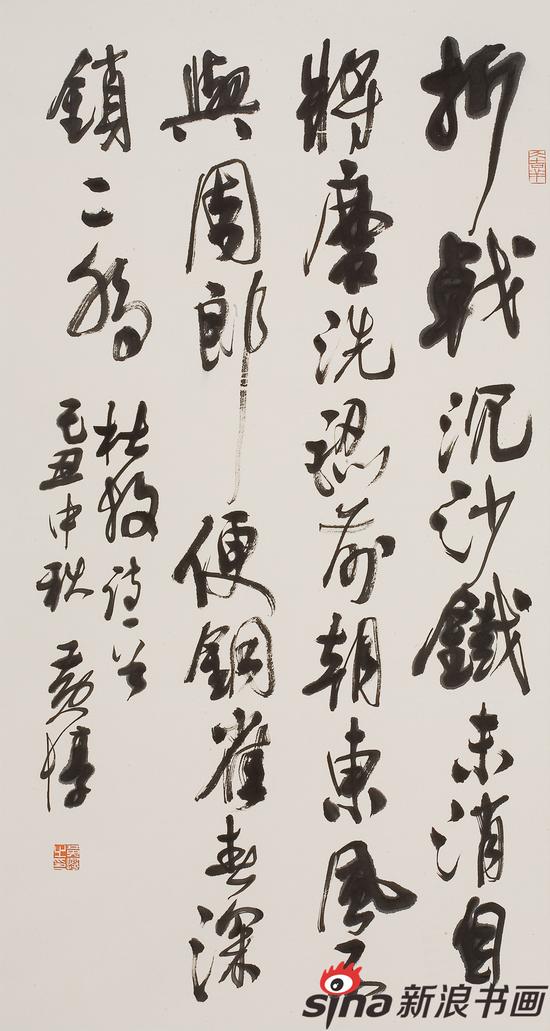 折戟沉沙鐵未消自
將磨洗認前朝東風不
與周郎便銅雀春深
鎖二喬
杜牧詩一首
己丑中秋 黃惇
sina 新浪书画